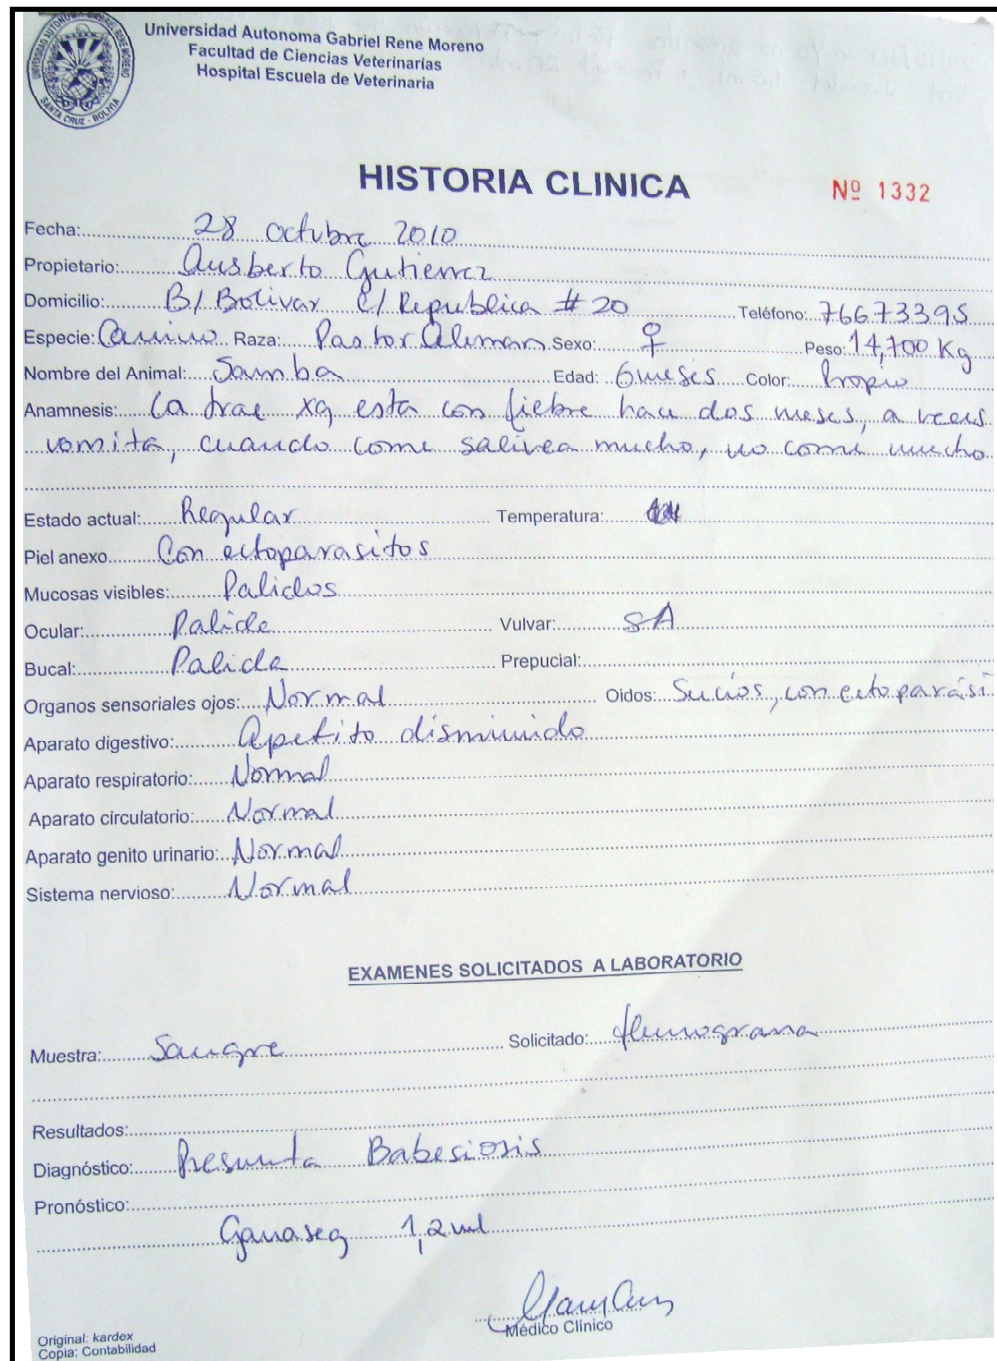 UNIVERSIDAD AUTONOMA GABRIEL RENE MORENO
SANTA CRUZ - BOLIVIA
Universidad Autonoma Gabriel Rene Moreno
Facultad de Ciencias Veterinarias
Hospital Escuela de Veterinaria
HISTORIA CLINICA Nº 1332
Fecha: 28 octubre 2010
Propietario: Ausberto Gutierrez
Domicilio: B/ Bolivar C/ Republica # 20 Teléfono: 76673395
Especie: Canino Raza: Pastor Aleman Sexo: ♀ Peso: 14,700 Kg
Nombre del Animal: Samba Edad: 6 meses Color: Propio
Anamnesis: La trae xq esta con fiebre hace dos meses, a veces
vomita, cuando come salivea mucho, no come mucho
Estado actual: Regular Temperatura:
Piel anexo Con ectoparasitos
Mucosas visibles: Palidos
Ocular: Palida Vulvar: SA
Bucal: Palida Prepucial:
Organos sensoriales ojos: Normal Oidos: Sucios, con ectoparási
Aparato digestivo: Apetito disminuido
Aparato respiratorio: Normal
Aparato circulatorio: Normal
Aparato genito urinario: Normal
Sistema nervioso: Normal
EXAMENES SOLICITADOS A LABORATORIO
Muestra: Sangre Solicitado: Hemograma
Resultados:
Diagnóstico: Presunta Babesiosis
Pronóstico:
Ganaseg 1,2 ml
Médico Clínico
Original: kardex
Copia: Contabilidad